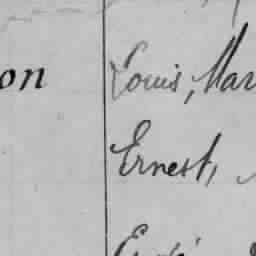 on Louis, Mar
Ernest,